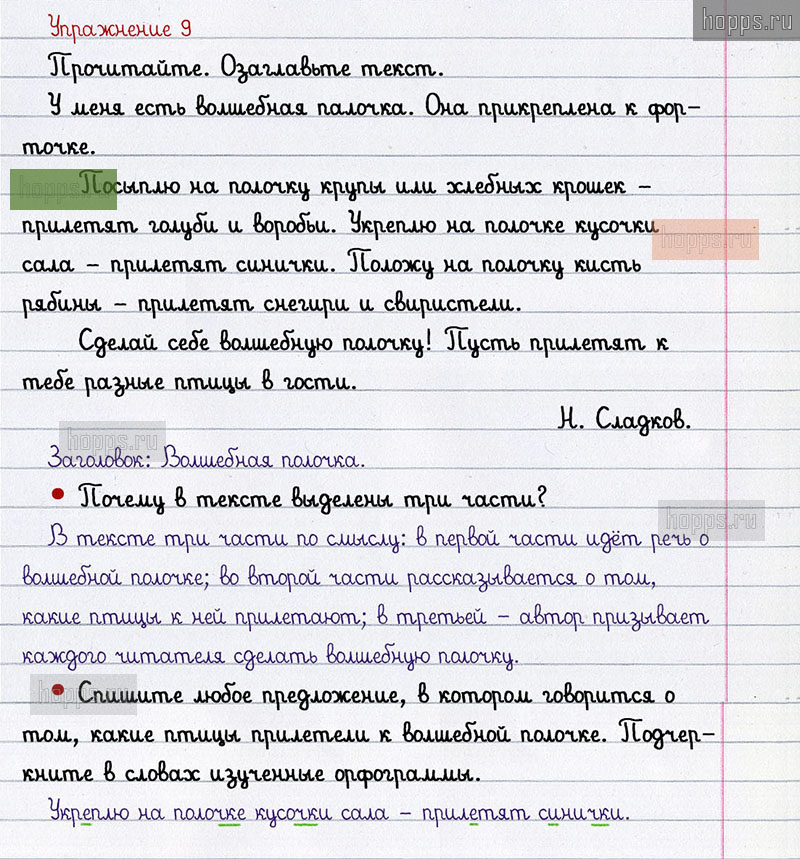 hopps.ru
Упражнение 9
Прочитайте. Озаглавьте текст.
У меня есть волшебная палочка. Она прикреплена к фор-
точке.
hopps.ru
Посыплю на полочку крупы или хлебных крошек –
прилетят голуби и воробьи. Укреплю на полочке кусочки
hopps.ru
сала – прилетят синички. Положу на полочку кисть
рябины – прилетят снегири и свиристели.
Сделай себе волшебную полочку! Пусть прилетят к
тебе разные птицы в гости.
Н. Сладков.
hopps.ru
Заголовок: Волшебная полочка.
• Почему в тексте выделены три части?
hopps.ru
В тексте три части по смыслу: в первой части идёт речь о
волшебной полочке; во второй части рассказывается о том,
какие птицы к ней прилетают; в третьей – автор призывает
каждого читателя сделать волшебную полочку.
hopps.ru
• Спишите любое предложение, в котором говорится о
том, какие птицы прилетели к волшебной полочке. Подчер-
кните в словах изученные орфограммы.
Укреплю на полочке кусочки сала – прилетят синички.